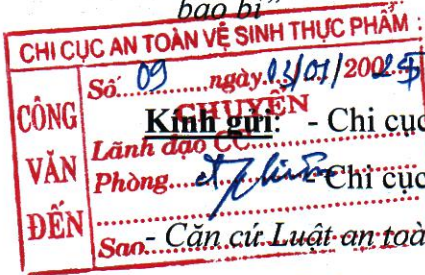 bao bì”
CHI CỤC AN TOÀN VỆ SINH THỰC PHẨM
CÔNG VĂN ĐẾN
Số: 09 ngày 03/01/200
CHUYỂN
Kính gửi: - Chi cục
Lãnh đạo CC
Phòng - Chi cục
Sao
- Căn cứ Luật an toà